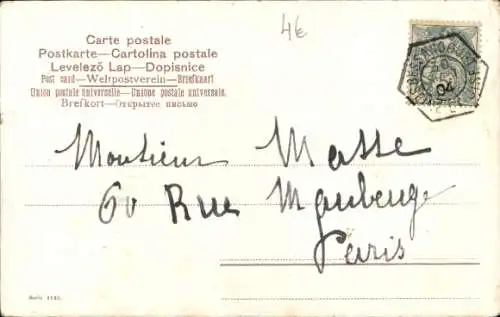 4€
Carte postale
Postkarte—Cartolina postale
Levelező Lap—Dopisnice
Post card—Weltpostverein—Briefkaart
Union postale universelle—Unione postale universale.
Brefkort—Открытое письмо
04
Monsieur Masse
60 Rue Maubeuge
Paris